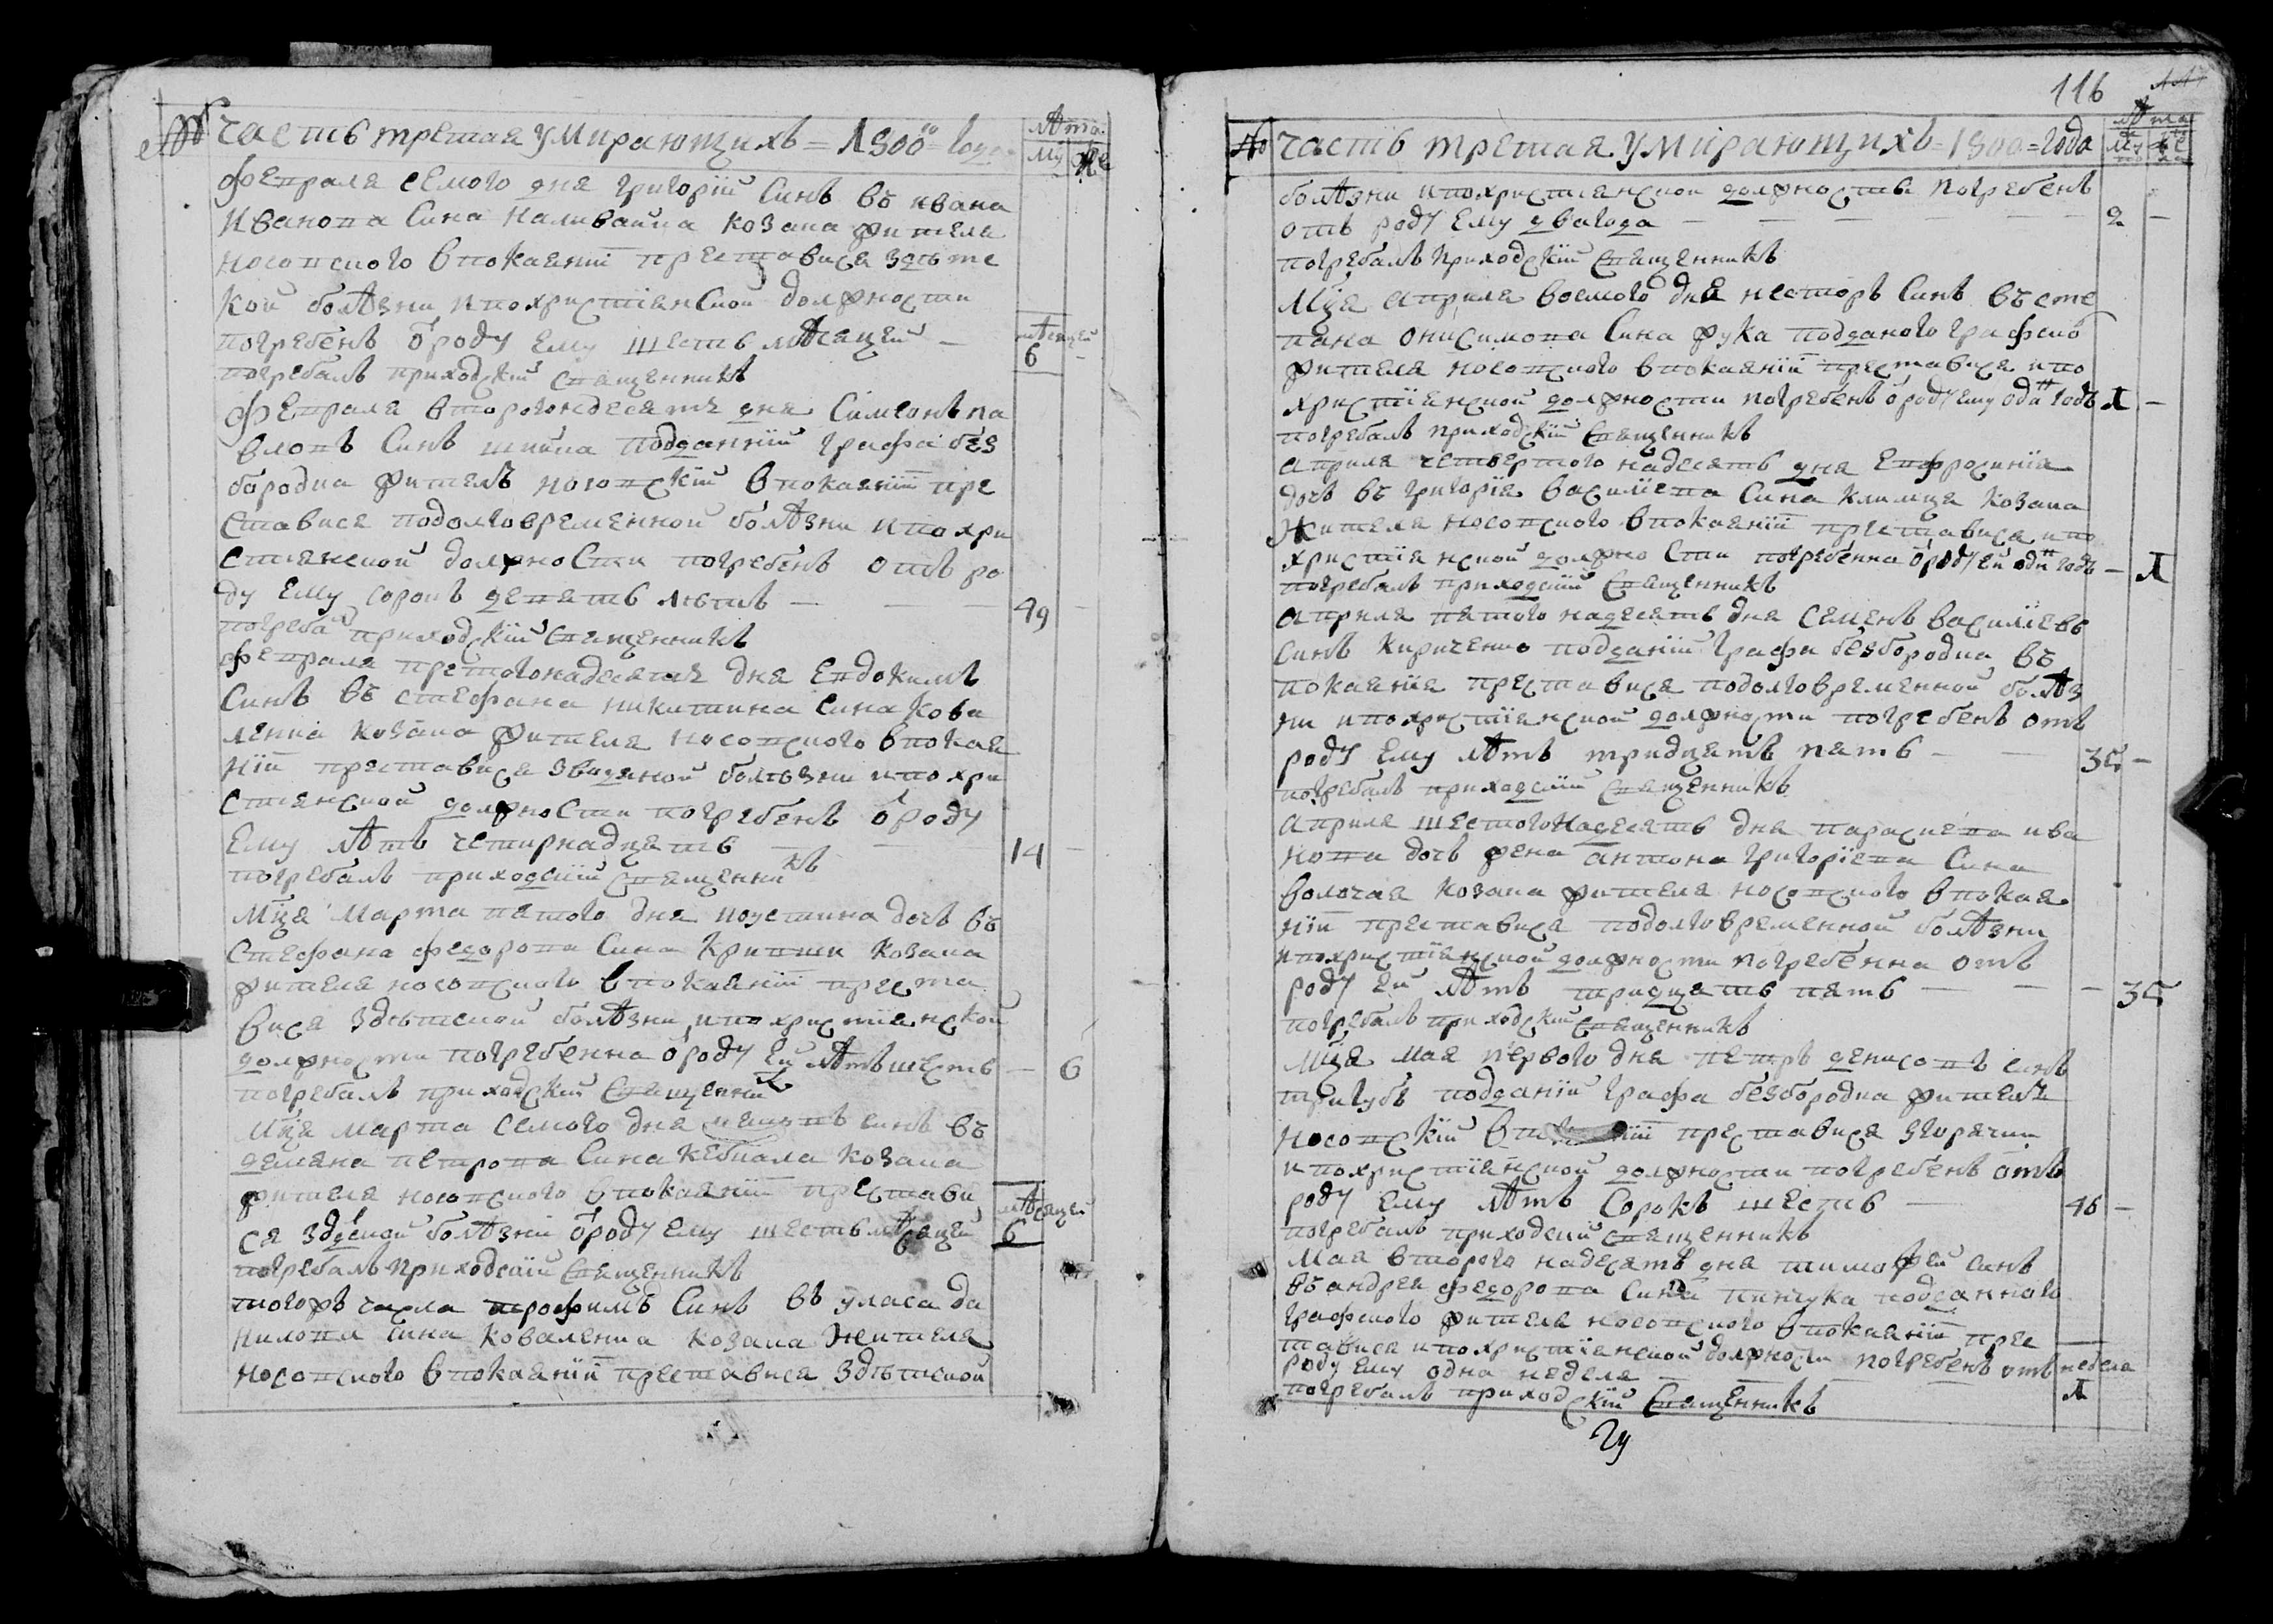 № Часть третая умирающихъ = 1800го = года
лѣта
му же
февраля семого дня григорій Синъ въ ивана
Иванова Сина наливайка козака жителя
носовского впокаяніи преставися здѣтс
кой болѣзни ипохристіянской должности
погребенъ ѿроду Ему шесть мѣсяцей —
мѣсяцей
6 —
погребалъ приходскій священникъ
февраля второгонадесять дня Симеонъ па
вловъ Синъ шкика подданній графа без
бородка житель носовскій впокаяніи пре
ставися подолговременной болѣзни ипохри
стиянской должности погребенъ отъ ро
ду Ему сорокъ девять лѣтъ — — — 49 —
погребалъ приходскій священникъ
февраля третогонадесять дня Евдокимъ
Синъ въ стефана никитина Сина Кова
ленка козака жителя носовского впокая
ніи преставися звидиной болѣзни ипохри
стиянской должности погребенъ ѿроду
Ему лѣтъ четирнадцять — — 14 —
погребалъ приходскій священникъ
Мца Марта пятого дня иустина дочь въ
Стефана федорова Сина Кривши козака
жителя носовского впокаяніи преста
вися здѣтской болѣзни ипохристіянской
должности погребенна ѿроду Ей лѣтъшесть — 6
погребалъ приходскій священникъ
Мца марта семого дня синъ въ
демяна петрова Сина Кебкала козака
жителя носовского впокаяніи престави
ся здѣской болѣзни ѿроду Ему шестьмѣсяцей
мѣсяцей
6
погребалъ приходскій священникъ
тогожъ числа трофимъ Синъ въ уласа да
нилова Сина коваленка козака жителя
носовского впокаяніи преставися здѣтской
116
№ Часть третая умирающихъ = 1800 = года
лѣта
болѣзни ипохристіянской должности погребенъ
отъ роду Ему двагода — — — — — 2 —
погребалъ приходскій священникъ
Мца априля восмого дня несторъ Синъ въ сте
пана онисимова Сина жука подданого графско
жителя носовского впокаяніи преставися ипо
христіянской должности погребенъ ѿроду ему одинъ годъ 1 —
погребалъ приходскій священникъ
априля четвертого надесять дня Ефросинія
дочь въ григорія василіева Сина климца козака
жителя носовского впокаяніи преставися ипо
христіянской должности погребенна ѿроду Ей одинъ годъ — 1
погребалъ приходскій священникъ
априля пятого надесять дня Семенъ василіевъ
синъ кириченко подданій графа безбородка въ
покаянія преставися подолговременной болѣз
ни ипохристіянской должности погребенъ отъ
роду Ему лѣтъ тридцять пять — — 35 —
погребалъ приходскій священникъ
априля шестогонадесять дня параскева ива
нова дочь жена антона григоріева Сина
волочая козака жителя носовского впокая
ніи преставися подолговременной болѣзни
ипохристіянской должности погребенна отъ
роду Ей лѣтъ тридцять пять — — — 35
погребалъ приходскій священникъ
Мца мая первого дня петръ денисовъ синъ
тригубъ подданій графа безбородка житель
носовскій впокаяніи преставися згорячки
ипохристіянской должности погребенъ отъ
роду Ему лѣтъ Сорокъ шесть — 46 —
погребалъ приходскій священникъ
мая второго надесять дня тимофей синъ
въ андрея федорова Сина пинчука подданного
графского жителя носовского впокаяніи прес
тавися ипохристіянской должности погребенъ отъ
роду ему одна неделя — — — неделя
1
погребалъ приходскій священникъ